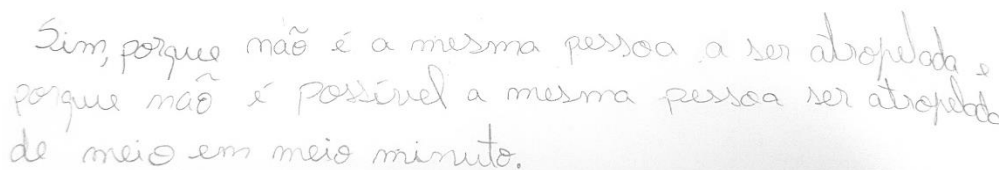 Sim, porque não é a mesma pessoa a ser atropelada e
porque não é possível a mesma pessoa ser atropelada
de meio em meio minuto.